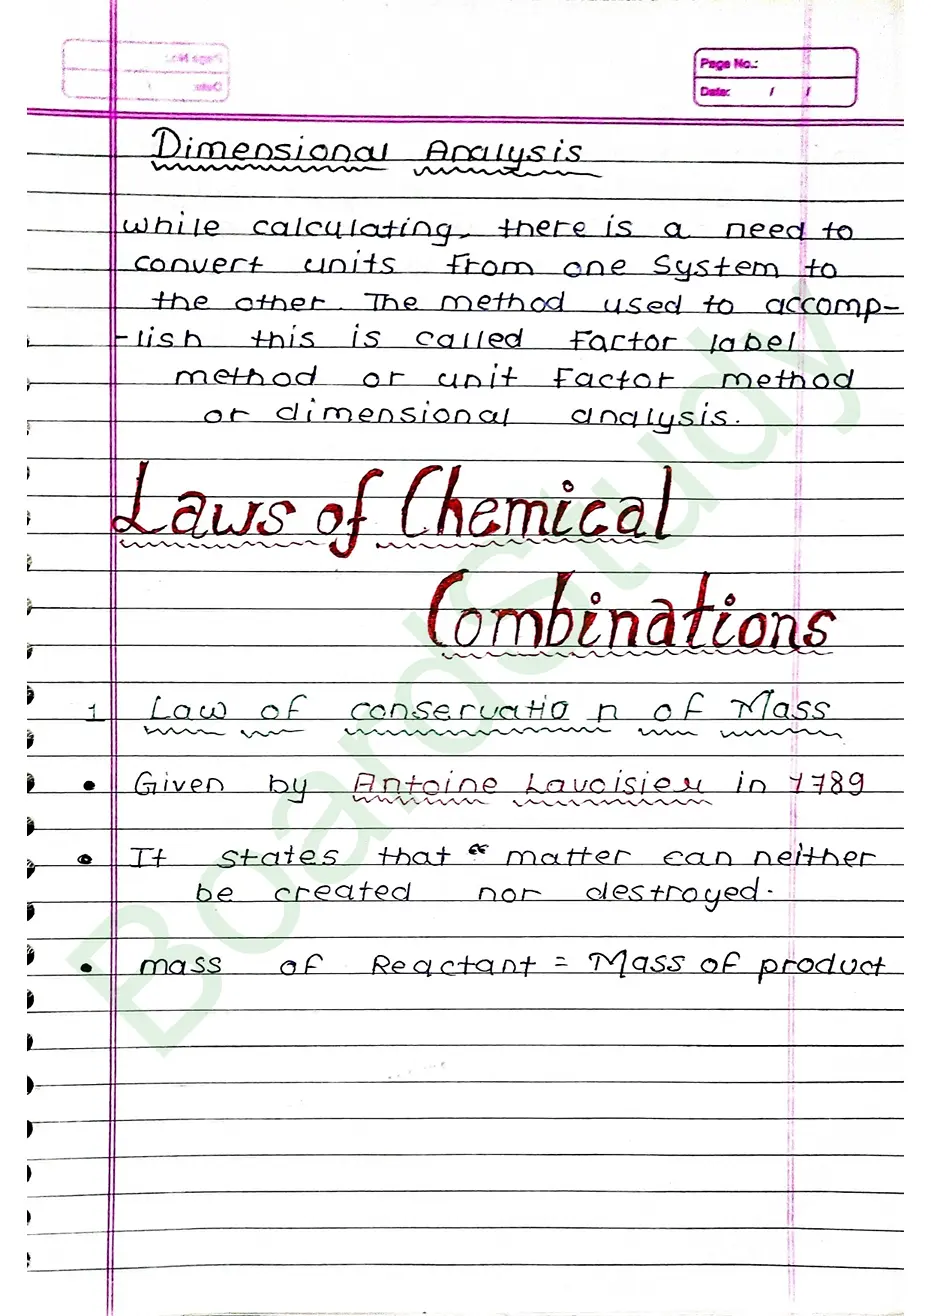 Page No.:
Date: / /
Dimensional Analysis
While calculating, there is a need to
convert units from one System to
the other. The method used to accomp-
-lish this is called Factor label
method or unit Factor method
or dimensional analysis.
Laws of Chemical
Combinations
1 Law of conservatio n of Mass
• Given by Antoine Lavoisier in 1789
• It states that “ matter can neither
be created nor destroyed.
• mass of Reactant = Mass of product
BoardStudy